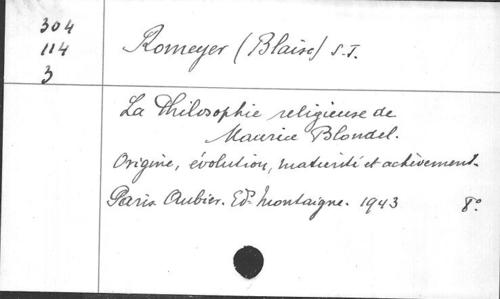 304
114
3
Romeyer (Blaise) S.J.
La Philosophie religieuse de
Maurice Blondel.
Origine, évolution, maturité et achèvement.
Paris. Aubier. Ed. Montaigne. 1943 8°